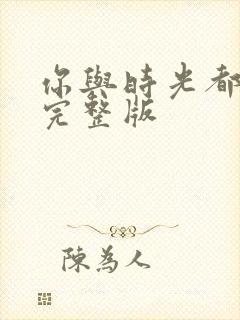 你與時光都
完整版
陳為人